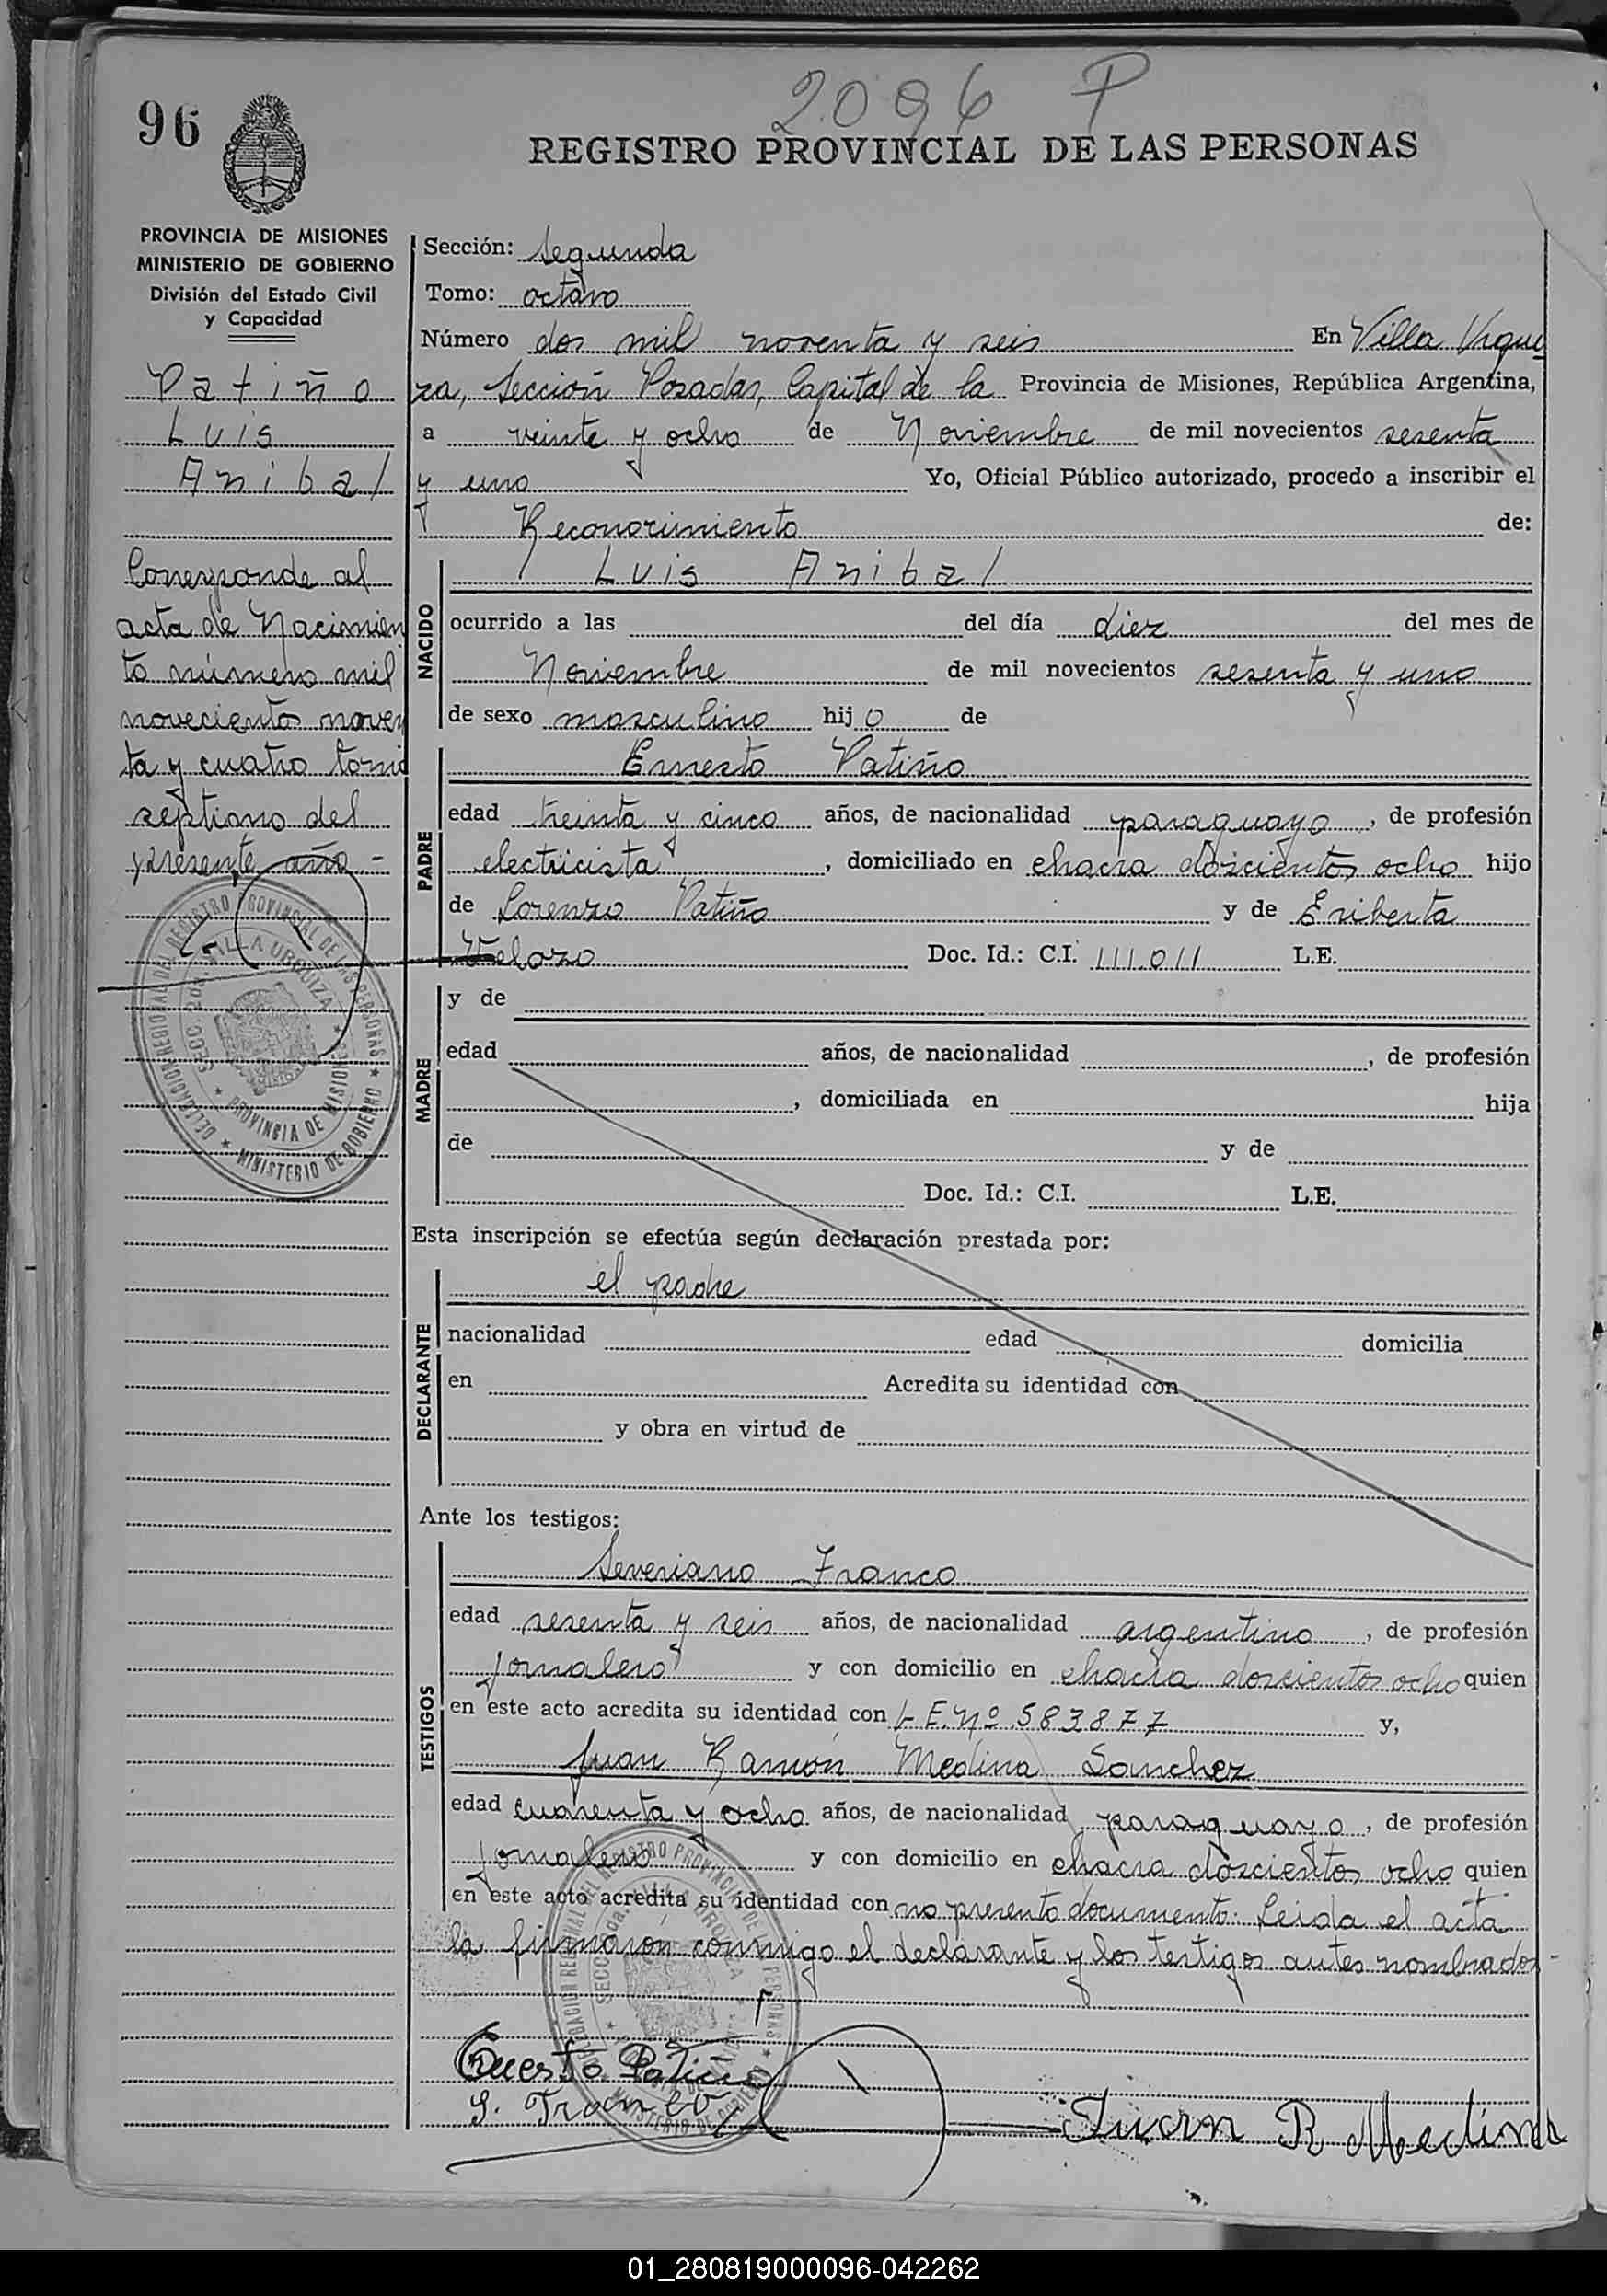 2096 P
96
REGISTRO PROVINCIAL DE LAS PERSONAS
PROVINCIA DE MISIONES
MINISTERIO DE GOBIERNO
División del Estado Civil
y Capacidad
Patiño
Luis
Anibal
Corresponde al
acta de Nacimien
to número mil
novecientos noven
ta y cuatro tomo
septimo del
presente año -
DELEGACION REGIONAL DEL REGISTRO PROVINCIAL DE LAS PERSONAS
SECC. 2da. VILLA URQUIZA
PROVINCIA DE MISIONES
MINISTERIO DE GOBIERNO
Sección: Segunda
Tomo: octavo
Número dos mil noventa y seis En Villa Urqui
za, Sección Posadas, Capital de la Provincia de Misiones, República Argentina,
a veinte y ocho de Noviembre de mil novecientos sesenta
y uno Yo, Oficial Público autorizado, procedo a inscribir el
Reconocimiento de:
NACIDO
Luis Anibal
ocurrido a las del día diez del mes de
Noviembre de mil novecientos sesenta y uno
de sexo masculino hijo de
PADRE
Ernesto Patiño
edad treinta y cinco años, de nacionalidad paraguayo, de profesión
electricista, domiciliado en chacra doscientos ocho hijo
de Lorenzo Patiño y de Eriberta
Velozo Doc. Id.: C.I. 111.011 L.E.
MADRE
y de
edad años, de nacionalidad , de profesión
, domiciliada en hija
de y de
Doc. Id.: C.I. L.E.
Esta inscripción se efectúa según declaración prestada por:
DECLARANTE
el padre
nacionalidad edad domicilia
en Acredita su identidad con
y obra en virtud de
Ante los testigos:
TESTIGOS
Severiano Franco
edad sesenta y seis años, de nacionalidad argentino, de profesión
jornalero y con domicilio en chacra doscientos ocho quien
en este acto acredita su identidad con L.E. Nº 583877 y,
Juan Ramón Medina Sanchez
edad cuarenta y ocho años, de nacionalidad paraguayo, de profesión
jornalero y con domicilio en chacra doscientos ocho quien
en este acto acredita su identidad con no presento documento. Leida el acta
la firmaron conmigo el declarante y los testigos antes nombrados -
Ernesto Patiño
S. Franco
Juan R Medina
01_280819000096-042262